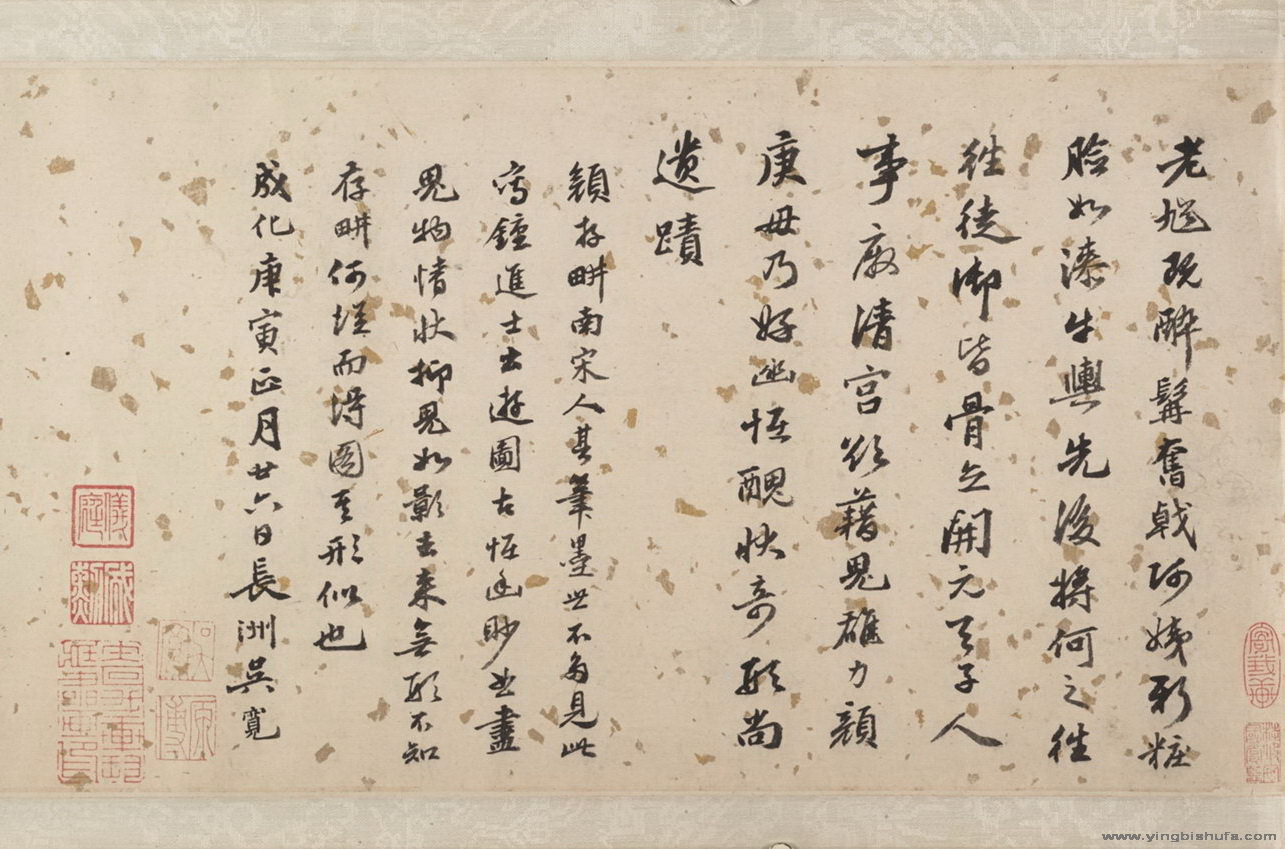 老馗既醉髯奮戟阿姨新粧
臉如漆牛輿先後將何之徃
徃徒御皆骨立開元天子人
事廢清宮欲藉鬼雄力顔
庚毋乃好幽怪醜狀奇形尚
遺蹟
顔存畊南宋人其筆墨世不多見此
寫鍾進士出遊圖古怪幽眇盡
鬼物情狀抑鬼如影去來無形不知
存畊何從而得圖其形似也
成化庚寅正月廿六日長洲吳寬
www.yingbishufa.com